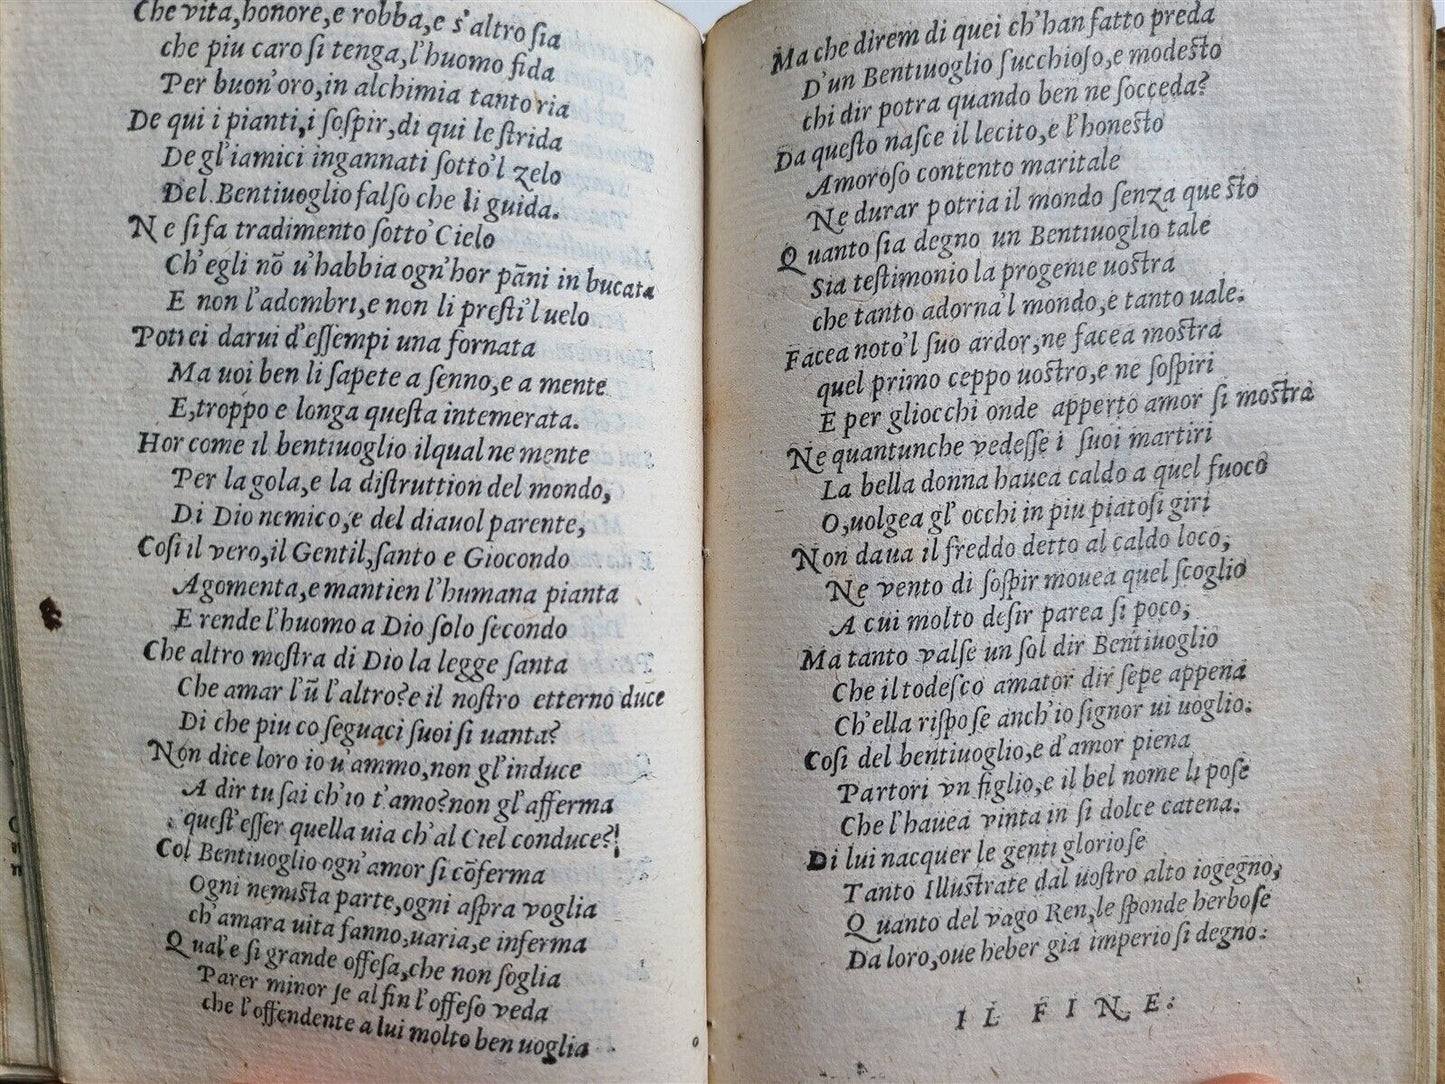 Che vita,honore,e robba,e s'altro sia
che piu caro si tenga,l'huomo fida
Per buon'oro,in alchimia tanto ria
De qui i pianti,i sospir,di qui le strida
De gl'iamici ingannati sotto'l zelo
Del Bentiuoglio falso che li guida.
Ne si fa tradimento sotto'Cielo
Ch'egli nõ u'habbia ogn'hor pãni in bucata
E non l'adombri,e non li presti'l uelo
Potrei darui d'essempi una fornata
Ma uoi ben li sapete a senno,e a mente
E,troppo e longa questa intemerata.
Hor come il bentiuoglio ilqual ne mente
Per la gola,e la distruttion del mondo,
Di Dio nemico,e del diauol parente,
Cosi il vero,il Gentil,santo e Giocondo
Agomenta,e mantien l'humana pianta
E rende l'huomo a Dio solo secondo
Che altro mostra di Dio la legge santa
Che amar l'ũ l'altro?e il nostro etterno duce
Di che piu co seguaci suoi si uanta?
Non dice loro io u'ammo,non gl'induce
A dir tu sai ch'io t'amo?non gl'afferma
quest'esser quella uia ch'al Ciel conduce?!
Col Bentiuoglio ogn'amor si cõferma
Ogni nemista parte,ogni aspra voglia
ch'amara uita fanno,uaria,e inferma
Qual'e si grande offesa,che non soglia
Parer minor se al fin l'offeso veda
che l'offendente a lui molto ben uoglia
Ma che direm di quei ch'han fatto preda
D'un Bentiuoglio succhioso,e modesto
chi dir potra quando ben ne socceda?
Da questo nasce il lecito,e l'honesto
Amoroso contento maritale
Ne durar potria il mondo senza questo
Quanto sia degno un Bentiuoglio tale
Sia testimonio la progenie uostra
che tanto adorna'l mondo,e tanto uale:
Facea noto'l suo ardor,ne facea mostra
quel primo ceppo uostro,e ne sospiri
E per gliocchi onde apperto amor si mostra
Ne quantunche vedesse i suoi martiri
La bella donna hauea caldo a quel fuoco
O,uolgea gl'occhi in piu piatosi giri
Non daua il freddo detto al caldo loco,
Ne vento di sospir mouea quel scoglio
A cui molto desir parea si poco,
Ma tanto valse un sol dir Bentiuoglio
Che il todesco amator dir sepe appena
Ch'ella rispose anch'io signor ui uoglio.
Cosi del bentiuoglio,e d'amor piena
Partori vn figlio,e il bel nome li pose
Che l'hauea vinta in si dolce catena.
Di lui nacquer le genti gloriose
Tanto Illustrate dal uostro alto iogegno,
Quanto del vago Ren,le sponde herbose
Da loro,oue heber gia imperio si degno.
IL FINE.